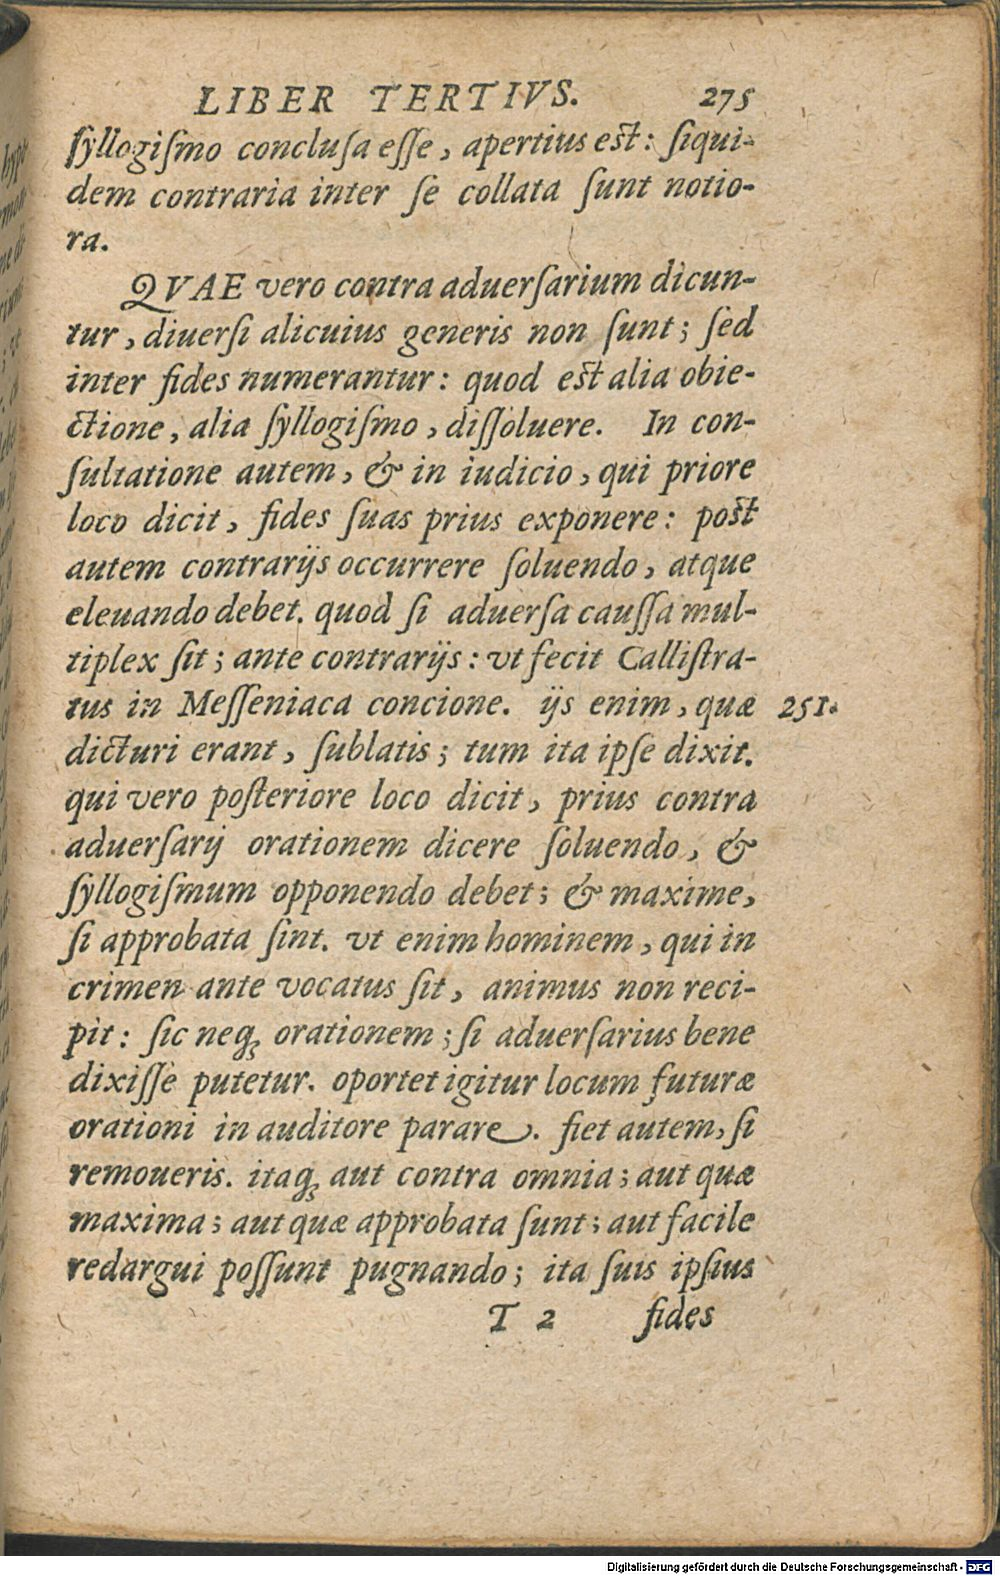 LIBER TERTIVS. 275
ſyllogiſmo concluſa eſſe, apertius est: ſiqui-
dem contraria inter ſe collata ſunt notio-
ra.
QVAE vero contra aduerſarium dicun-
tur, diuerſi alicuius generis non ſunt; ſed
inter fides numerantur: quod est alia obie-
ctione, alia ſyllogiſmo, diſſoluere. In con-
ſultatione autem, & in iudicio, qui priore
loco dicit, fides ſuas prius exponere: post
autem contrarijs occurrere ſoluendo, atque
eleuando debet. quod ſi aduerſa cauſſa mul-
tiplex ſit; ante contrarijs: vt fecit Calliſtra-
tus in Meſſeniaca concione. ijs enim, quæ 251.
dicturi erant, ſublatis; tum ita ipſe dixit.
qui vero poſteriore loco dicit, prius contra
aduerſarij orationem dicere ſoluendo, &
ſyllogiſmum opponendo debet; & maxime,
ſi approbata ſint. vt enim hominem, qui in
crimen ante vocatus ſit, animus non reci-
pit: ſic neq; orationem; ſi aduerſarius bene
dixiſſe putetur. oportet igitur locum futuræ
orationi in auditore parare. fiet autem, ſi
remoueris. itaq; aut contra omnia; aut quæ
maxima; aut quæ approbata ſunt; aut facile
redargui poſſunt pugnando; ita ſuis ipſius
T 2 fides
Digitalisierung gefördert durch die Deutsche Forschungsgemeinschaft - DFG